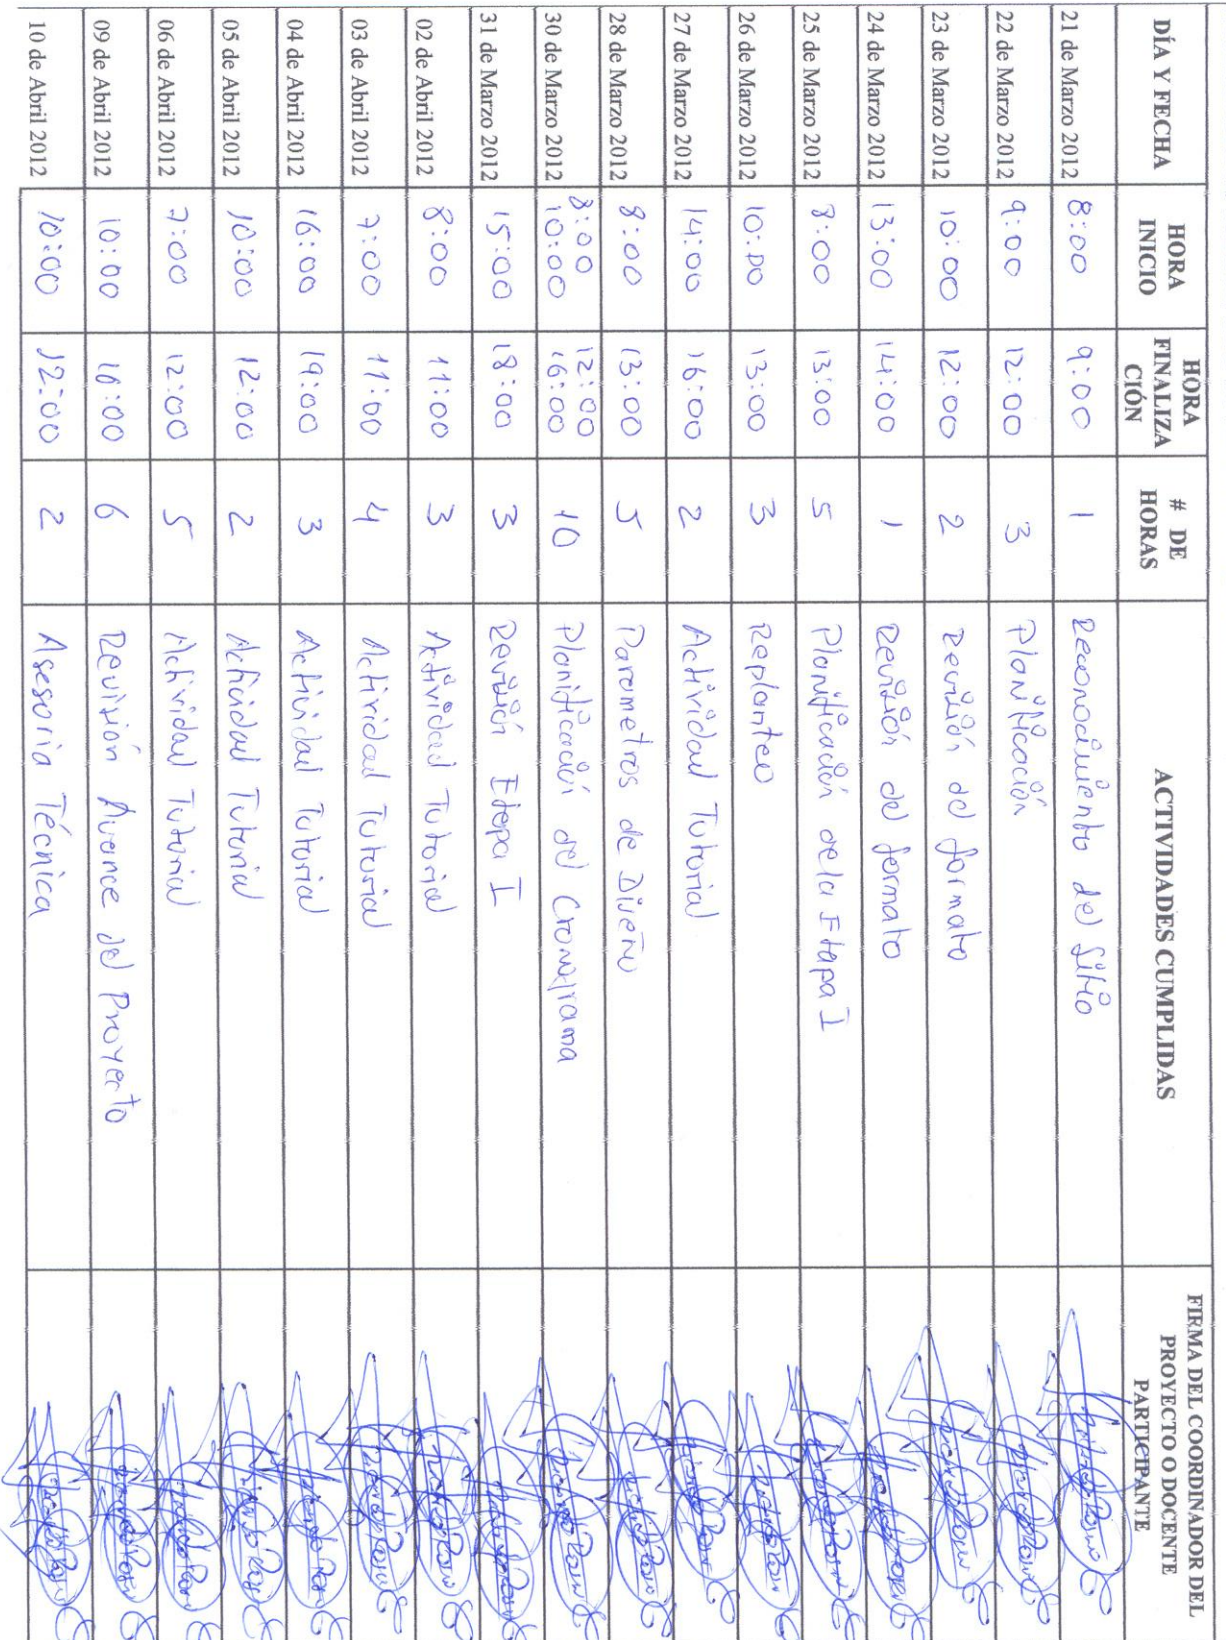 DÍA Y FECHA HORA INICIO HORA FINALIZA CIÓN # DE HORAS ACTIVIDADES CUMPLIDAS FIRMA DEL COORDINADOR DEL PROYECTO O DOCENTE PARTICIPANTE
21 de Marzo 2012 8:00 9:00 1 Reconocimiento del Sitio
22 de Marzo 2012 9:00 12:00 3 Planificación
23 de Marzo 2012 10:00 12:00 2 Revisión del formato
24 de Marzo 2012 13:00 14:00 1 Revisión del formato
25 de Marzo 2012 8:00 13:00 5 Planificación de la Etapa I
26 de Marzo 2012 10:00 13:00 3 Replanteo
27 de Marzo 2012 14:00 16:00 2 Actividad Tutorial
28 de Marzo 2012 8:00 13:00 5 Parametros de Diseño
30 de Marzo 2012 8:00 10:00 12:00 16:00 10 Planificación del Cronograma
31 de Marzo 2012 15:00 18:00 3 Revisión Etapa I
02 de Abril 2012 8:00 11:00 3 Actividad Tutorial
03 de Abril 2012 7:00 11:00 4 Actividad Tutorial
04 de Abril 2012 16:00 19:00 3 Actividad Tutorial
05 de Abril 2012 10:00 12:00 2 Actividad Tutorial
06 de Abril 2012 7:00 12:00 5 Actividad Tutorial
09 de Abril 2012 10:00 16:00 6 Revisión Avance del Proyecto
10 de Abril 2012 10:00 12:00 2 Asesoria Técnica